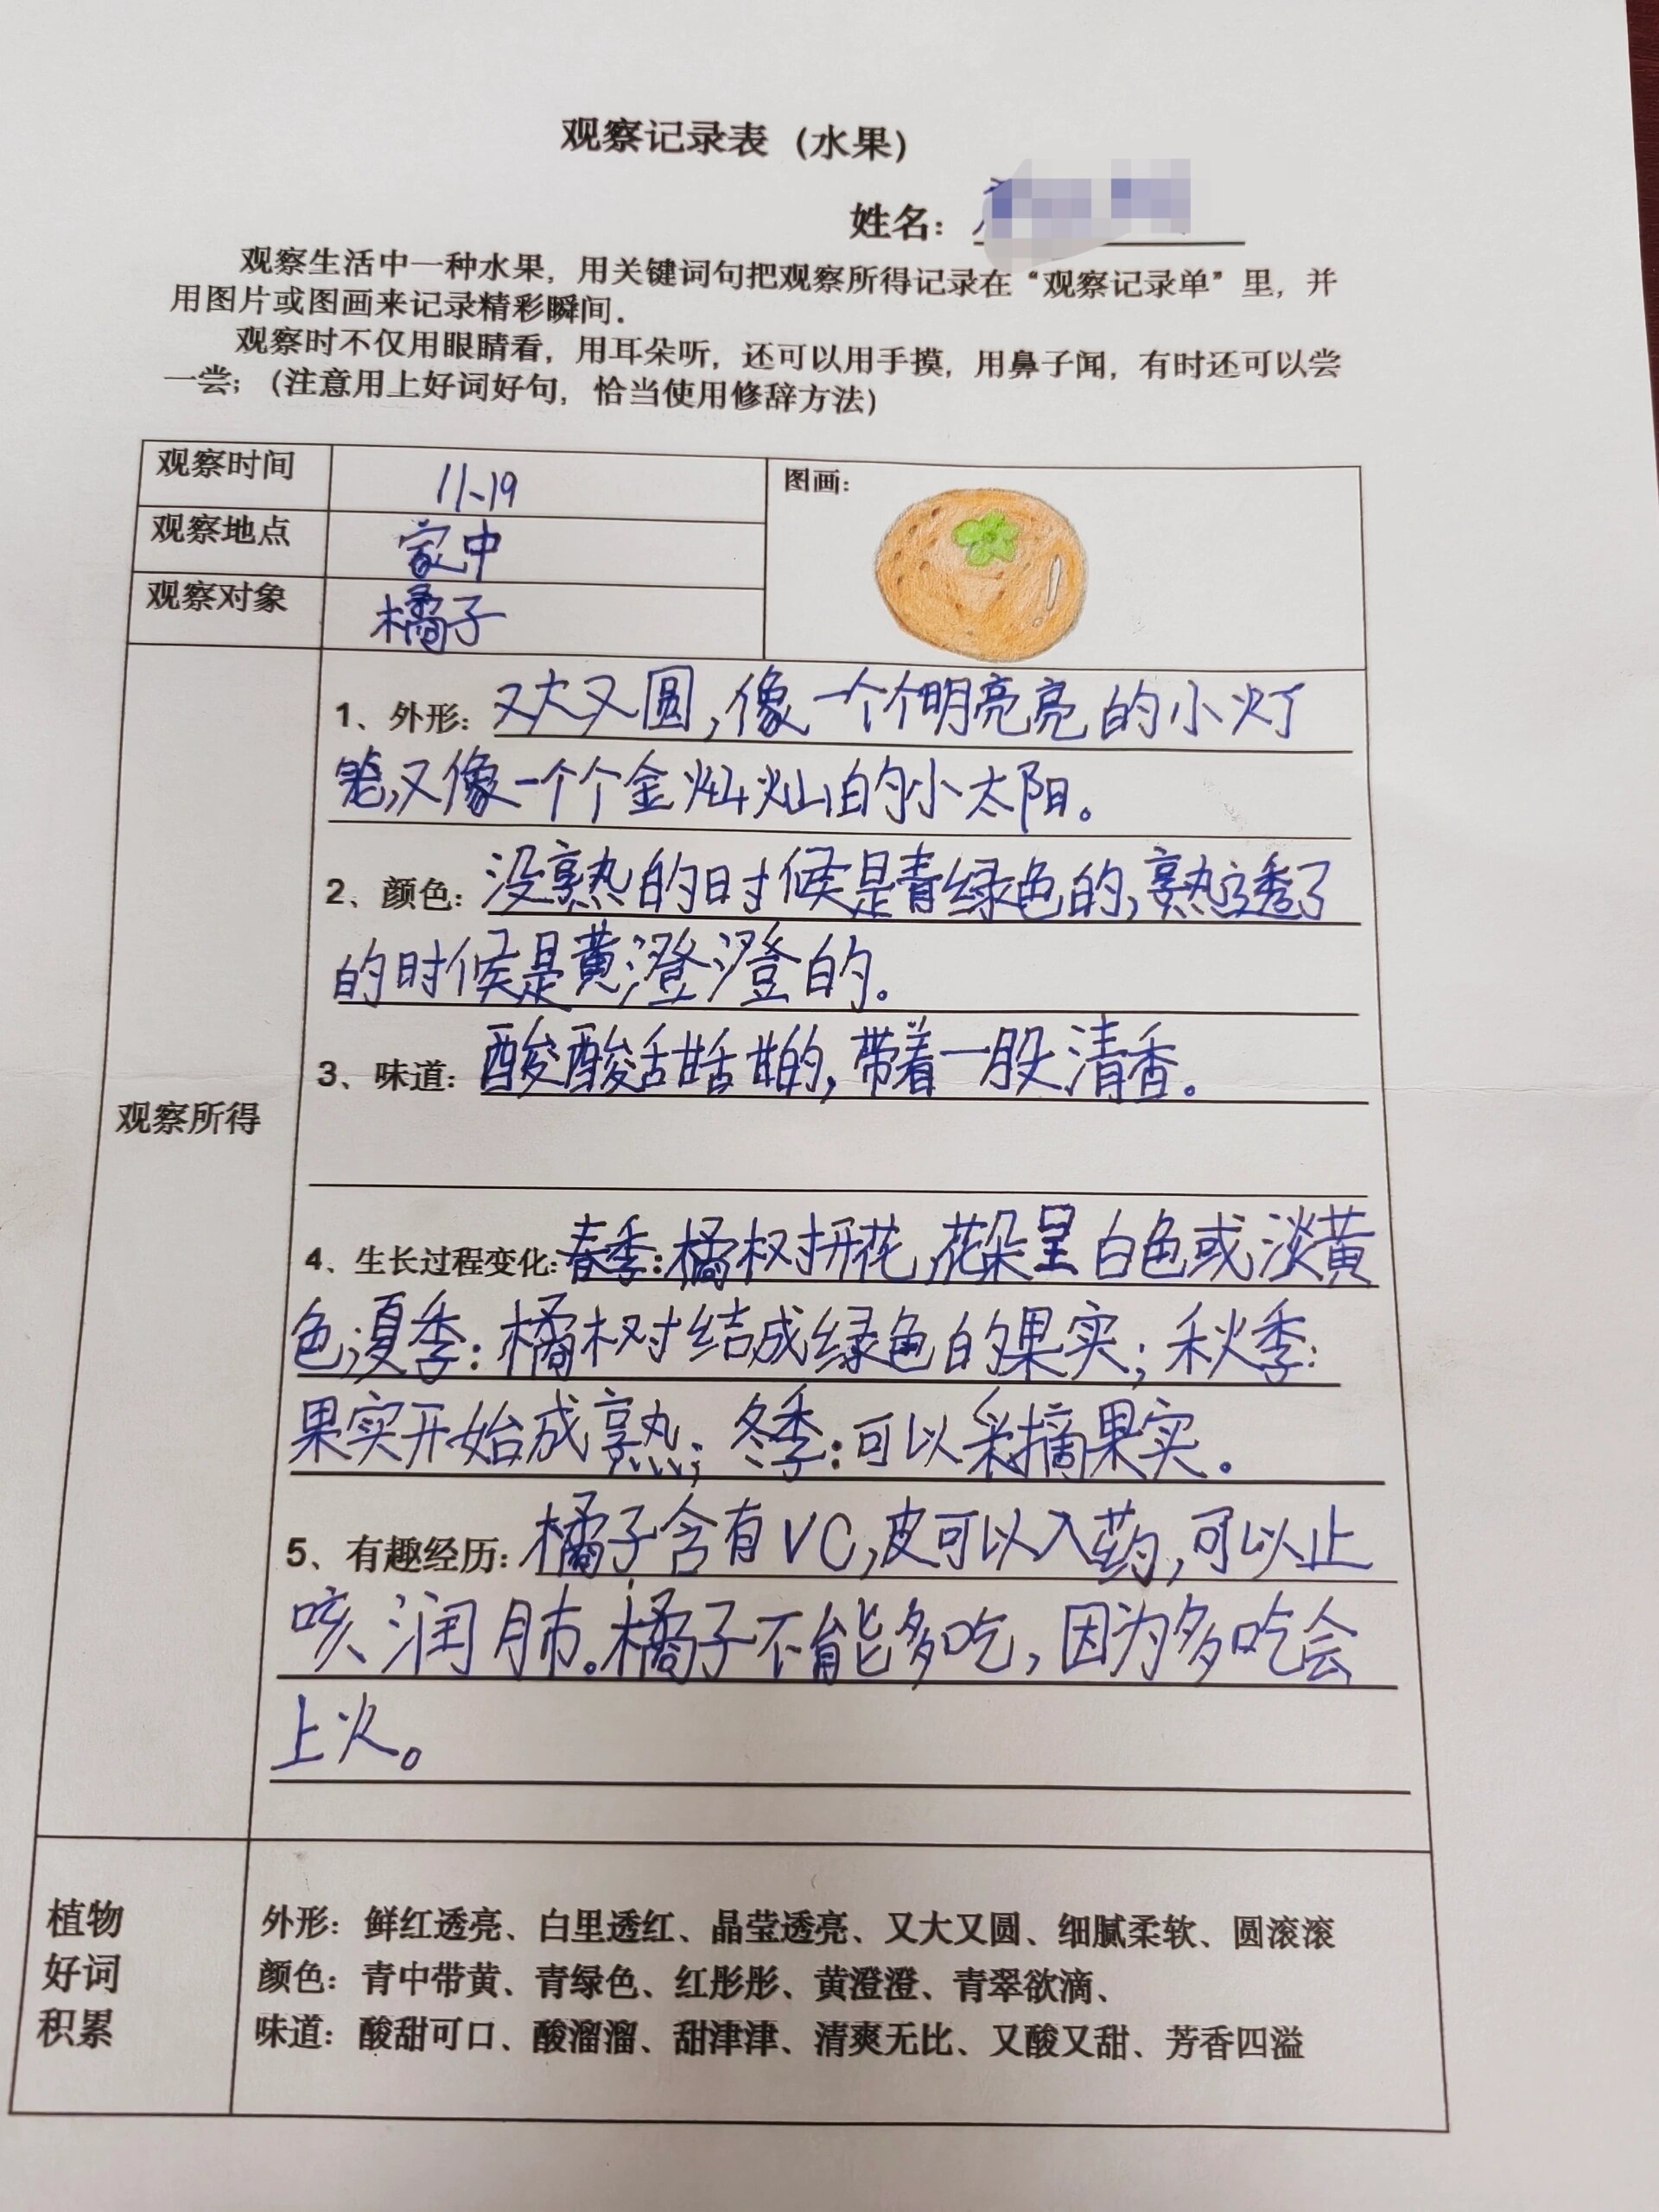 观察记录表（水果）
姓名：
观察生活中一种水果，用关键词句把观察所得记录在“观察记录单”里，并
用图片或图画来记录精彩瞬间．
观察时不仅用眼睛看，用耳朵听，还可以用手摸，用鼻子闻，有时还可以尝
一尝；（注意用上好词好句，恰当使用修辞方法）
观察时间 11、19
图画：
观察地点 家中
观察对象 橘子
观察所得
1、外形：又大又圆，像一个个明亮亮的小灯
笼，又像一个个金灿灿的小太阳。
2、颜色：没熟的时候是青绿色的，熟透了
的时候是黄澄澄的。
3、味道：酸酸甜甜的，带着一股清香。
4、生长过程变化：春季：橘树开花，花朵呈白色或淡黄
色；夏季：橘树结成绿色的果实；秋季：
果实开始成熟；冬季：可以采摘果实。
5、有趣经历：橘子含有VC，皮可以入药，可以止
咳、润肺。橘子不能多吃，因为多吃会
上火。
植物
好词
积累
外形：鲜红透亮、白里透红、晶莹透亮、又大又圆、细腻柔软、圆滚滚
颜色：青中带黄、青绿色、红彤彤、黄澄澄、青翠欲滴、
味道：酸甜可口、酸溜溜、甜津津、清爽无比、又酸又甜、芳香四溢